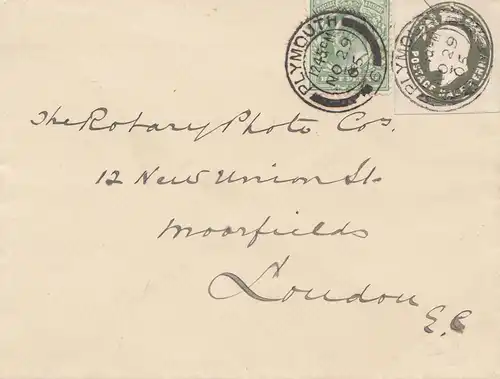 PLYMOUTH
1245PM
NO 29
05
PLYMOUTH
NO 29
05
POSTAGE
The Rotary Photo Cos.
12 New Union St.
Moorfields
London
E.C